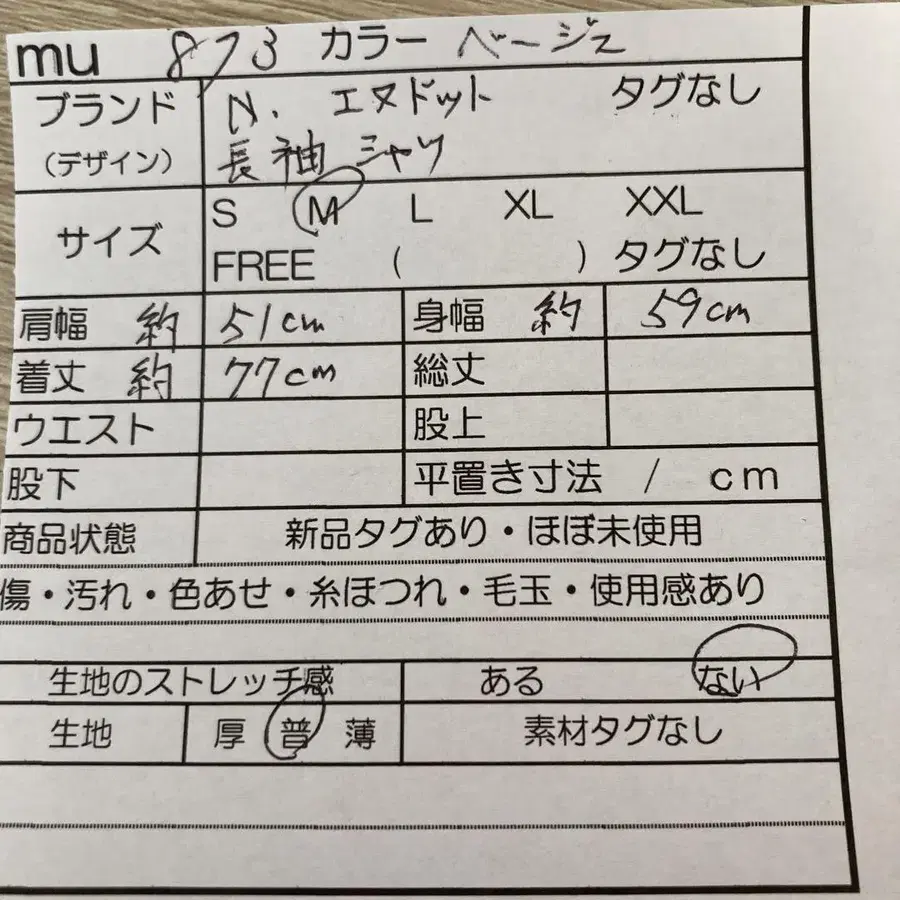 mu 873 カラー ベージュ
ブランド N. エヌドット タグなし
(デザイン) 長袖 シャツ
サイズ S M L XL XXL
FREE ( ) タグなし
肩幅 約 51cm 身幅 約 59cm
着丈 約 77cm 総丈
ウエスト 股上
股下 平置き寸法 / cm
商品状態 新品タグあり・ほぼ未使用
傷・汚れ・色あせ・糸ほつれ・毛玉・使用感あり
生地のストレッチ感 ある ない
生地 厚 普 薄 素材タグなし